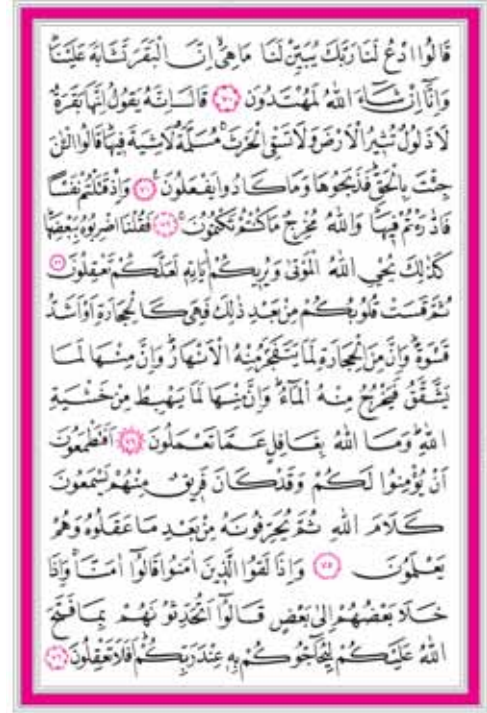 قَالُوا ادْعُ لَنَا رَبَّكَ يُبَيِّنْ لَنَا مَا هِيَ اِنَّ الْبَقَرَ تَشَابَهَ عَلَيْنَا
وَاِنَّا اِنْ شَاءَ اللّٰهُ لَمُهْتَدُونَ ﴿٧٠﴾ قَالَ اِنَّهُ يَقُولُ اِنَّهَا بَقَرَةٌ
لَا ذَلُولٌ تُثِيرُ الْاَرْضَ وَلَا تَسْقِي الْحَرْثَ مُسَلَّمَةٌ لَا شِيَةَ فِيهَا قَالُوا الْـٰٔنَ
جِئْتَ بِالْحَقِّ فَذَبَحُوهَا وَمَا كَادُوا يَفْعَلُونَ ﴿٧١﴾ وَاِذْ قَتَلْتُمْ نَفْسًا
فَادّٰرَءْتُمْ فِيهَا وَاللّٰهُ مُخْرِجٌ مَا كُنْتُمْ تَكْتُمُونَ ﴿٧٢﴾ فَقُلْنَا اضْرِبُوهُ بِبَعْضِهَا
كَذٰلِكَ يُحْيِي اللّٰهُ الْمَوْتٰى وَيُرِيكُمْ اٰيَاتِهِ لَعَلَّكُمْ تَعْقِلُونَ ﴿٧٣﴾
ثُمَّ قَسَتْ قُلُوبُكُمْ مِنْ بَعْدِ ذٰلِكَ فَهِيَ كَالْحِجَارَةِ اَوْ اَشَدُّ
قَسْوَةً وَاِنَّ مِنَ الْحِجَارَةِ لَمَا يَتَفَجَّرُ مِنْهُ الْاَنْهَارُ وَاِنَّ مِنْهَا لَمَا
يَشَّقَّقُ فَيَخْرُجُ مِنْهُ الْمَاءُ وَاِنَّ مِنْهَا لَمَا يَهْبِطُ مِنْ خَشْيَةِ
اللّٰهِ وَمَا اللّٰهُ بِغَافِلٍ عَمَّا تَعْمَلُونَ ﴿٧٤﴾ اَفَتَطْمَعُونَ
اَنْ يُؤْمِنُوا لَكُمْ وَقَدْ كَانَ فَرِيقٌ مِنْهُمْ يَسْمَعُونَ
كَلَامَ اللّٰهِ ثُمَّ يُحَرِّفُونَهُ مِنْ بَعْدِ مَا عَقَلُوهُ وَهُمْ
يَعْلَمُونَ ﴿٧٥﴾ وَاِذَا لَقُوا الَّذِينَ اٰمَنُوا قَالُوا اٰمَنَّا وَاِذَا
خَلَا بَعْضُهُمْ اِلٰى بَعْضٍ قَالُوا اَتُحَدِّثُونَهُمْ بِمَا فَتَحَ
اللّٰهُ عَلَيْكُمْ لِيُحَاجُّوكُمْ بِهِ عِنْدَ رَبِّكُمْ اَفَلَا تَعْقِلُونَ ﴿٧٦﴾